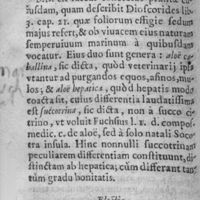 suſdam, quam deſcribit Dioſcorides lib.
3. cap. 21. quæ foliorum effigie ſedum
majus refert, & ob vivacem eius naturam
ſempervivum marinum à quibuſdam
vocatur. Eius duo ſunt genera: aloë ca-
ballina, ſic dicta, quòd veterinarij ipſa
utantur ad purgandos equos, aſinos, mu-
los; & aloë hepatica, quòd hepatis modo
coacta ſit, cuius differentia laudatiſſima
eſt ſuccotrina, ſic dicta, non à ſucco ci-
trino, ut voluit Fuchſius l. 1. c. d. compoſ.
medic. c. de aloë, ſed à ſolo natali Soco-
tra inſula. Hinc nonnulli ſuccotrinam
peculiarem differentiam conſtituunt, di-
ſtinctam ab hepatica; cùm differant tan-
tùm gradu bonitatis.